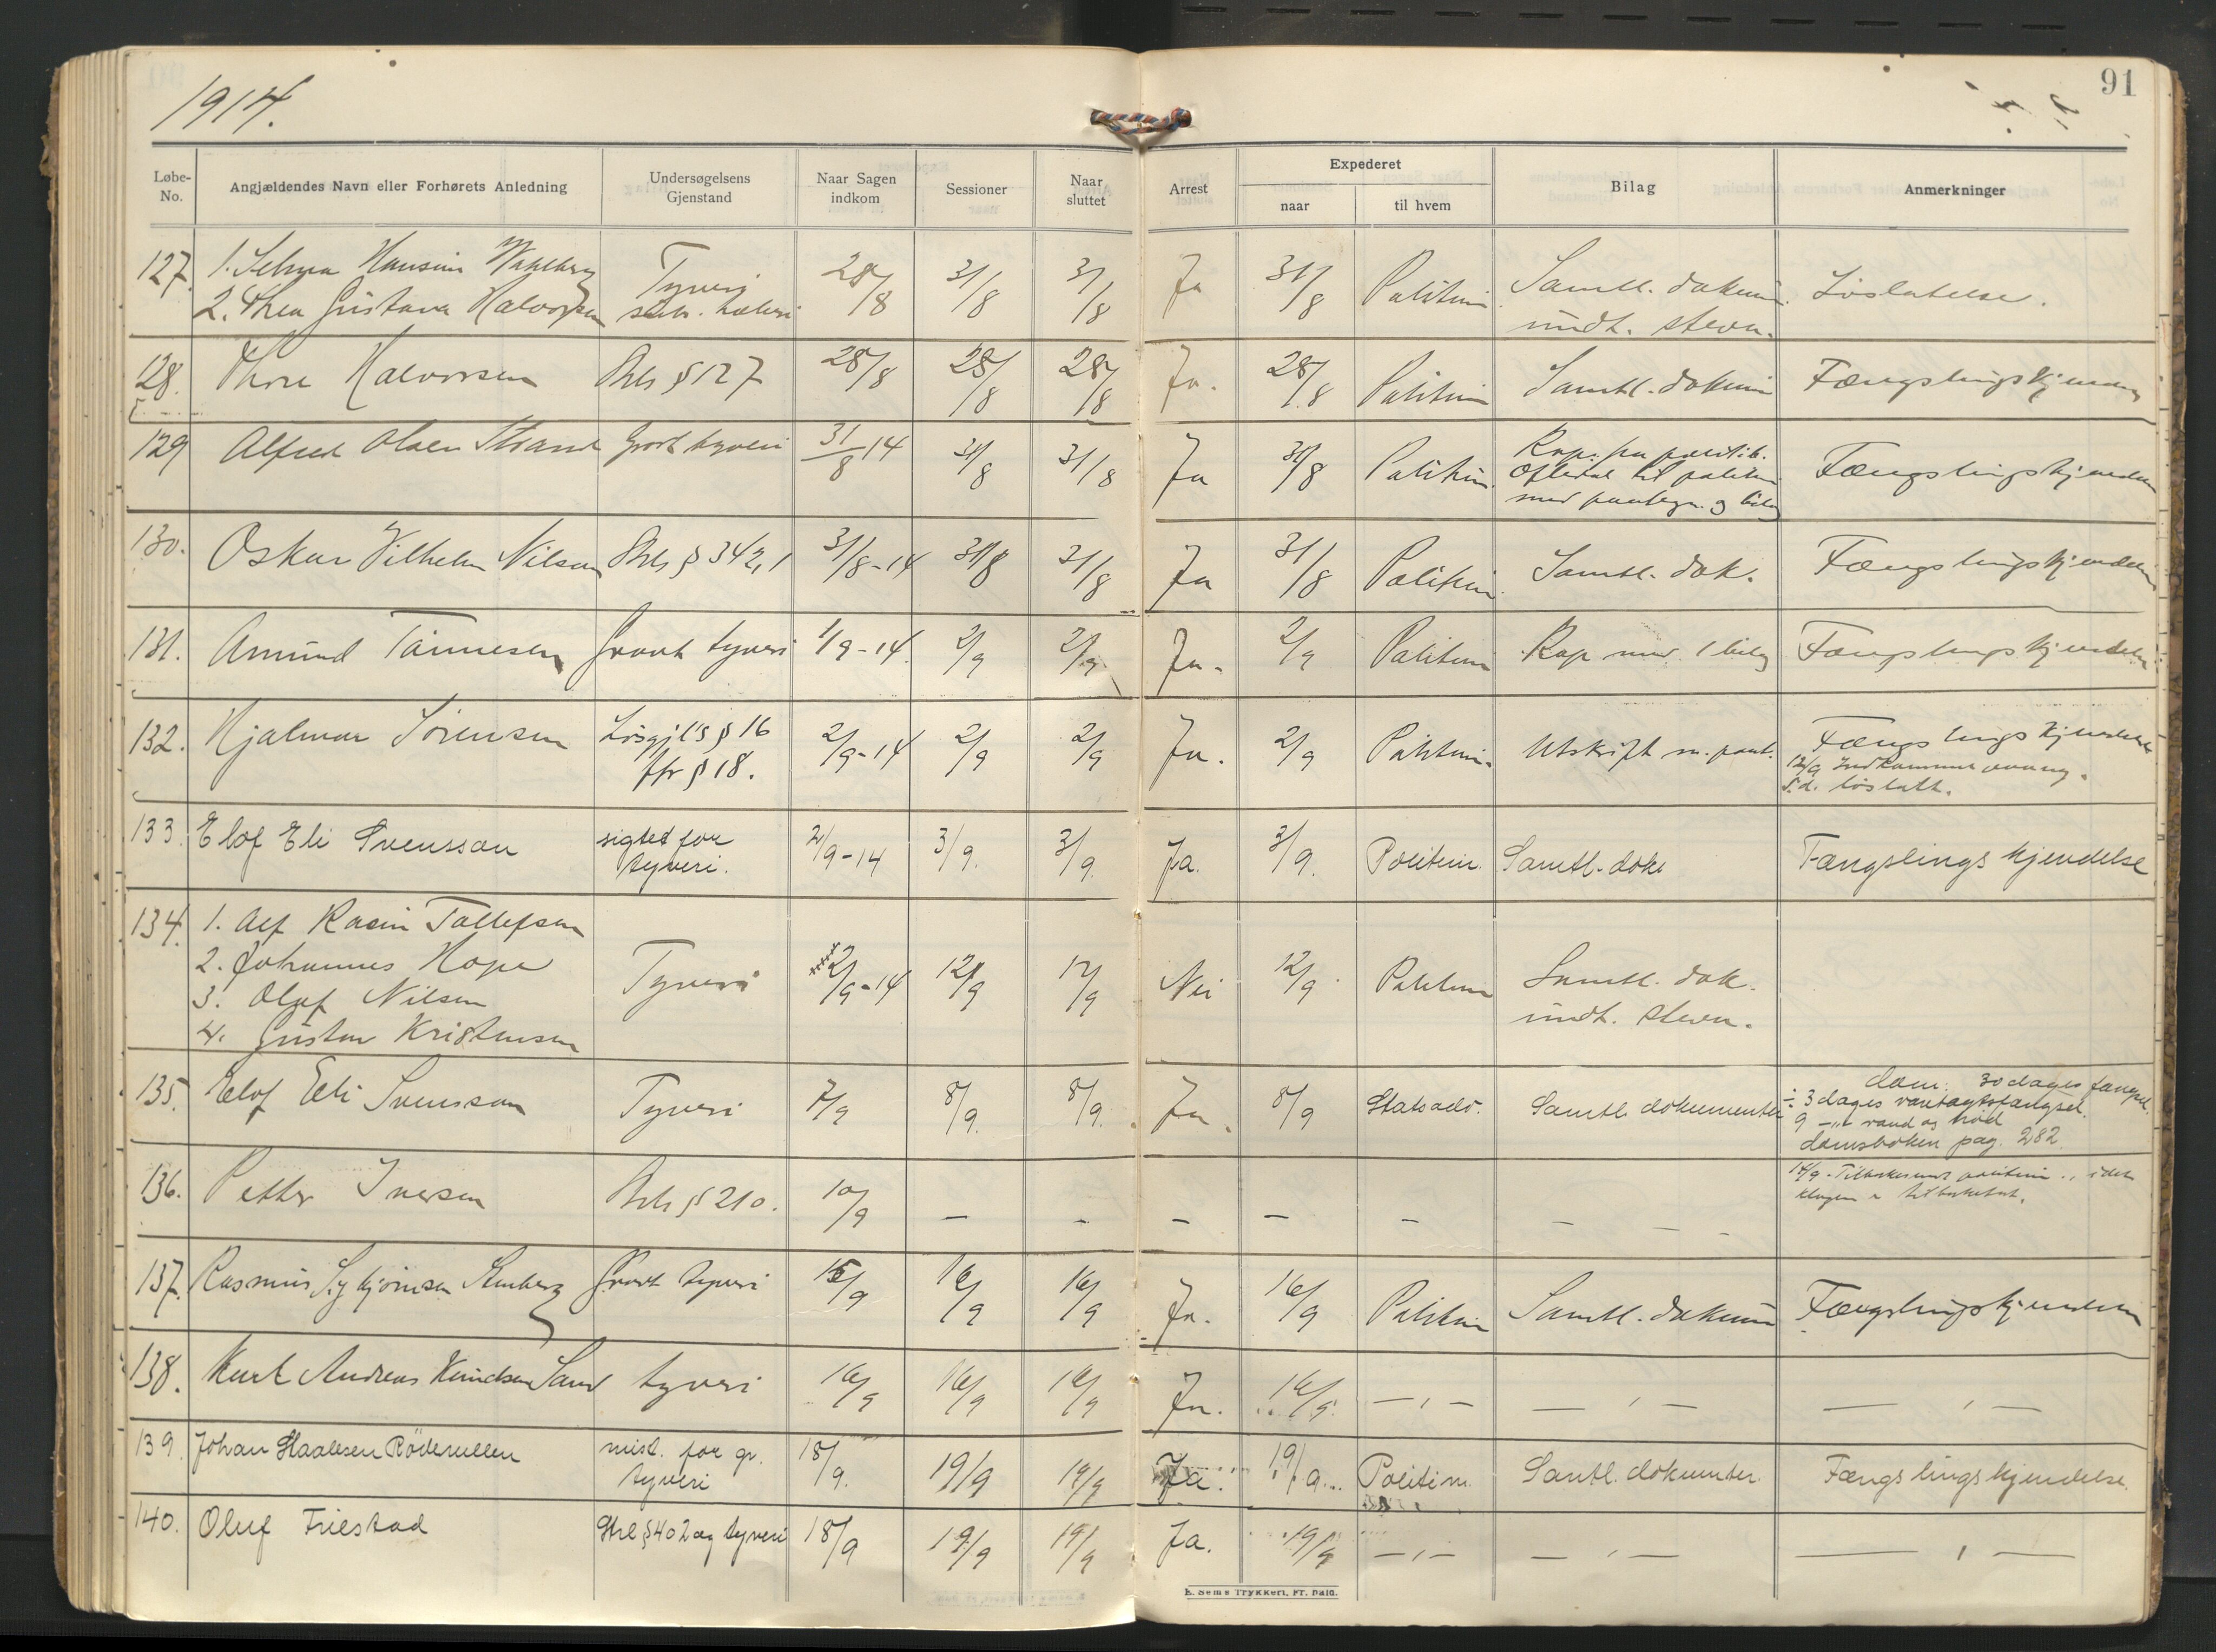 1914.
91
Løbe-No. Angjældendes Navn eller Forhørets Anledning Undersøgelsens Gjenstand Naar Sagen indkom Sessioner Naar sluttet Arrest Expederet naar til hvem Bilag Anmerkninger
127. 1. Selma Hansine Tyveri 28/8 31/8 31/8 Ja 31/8 Politim Samtl. dokum. Løslatelse.
2. Thea Gustava Halvorsen subs. hæleri undt. stevn.
128. Thore Halvorsen Strl. § 127 28/8 28/8 28/8 Ja. 28/8 Politim Samtl. dokum Fængslingskjendelse
129 Alfred Olsen Strand Grovt tyveri 31/8 14 31/8 31/8 Ja 31/8 Politim. Rap. fra politib.
Oftedal til politim Fængslingskjendelse
med paategn. og bilag
130. Oskar Vilhelm Nilsen Strl. § 342,1 31/8-14 31/8 31/8 Ja 31/8 Politim Samtl. dok. Fængslingskjendelse
131. Amund Tønnesen Grovt tyveri 1/9-14. 2/9 2/9 Ja. 2/9 Politim Rap med 1 bilag Fængslingskjendelse
132. Hjalmar Sørensen Løsgjl's § 16 2/9-14 2/9 2/9 Ja. 2/9 Politim. Utskrift m. paat. Fængslingskjendelse
jfr § 18. 12/9 Indkommer
S.d. løslatt.
133. Elof Eli Svensson sigtet for 2/9-14 3/9. 3/9. Ja. 3/9. Politim. Samtl. dok. Fængslingskjendelse
tyveri.
134. 1. Alf Tollefsen
2. Johannes Hope Tyveri 2/9-14 12/9 12/9 Nei 12/9 Politim Samtl. dok.
3. Olaf Nilsen undt. stevn.
4. Gustav Kristensen
135. Elof Eli Svensson Tyveri 7/9 8/9. 8/9. Ja. 8/9 Statsadv. Samtl. dokumenter dom: 30 dages fængsel
÷ 3 dages varetægtsfængsel.
9 -"- vand og brød
domsboken pag. 282
136. Petter Iversen Strl § 210. 10/9 – – – – – – – – 14/9. Tilbakesendt politim., idet
klagen er tilbaketat.
137. Rasmus Grovt tyveri 15/9 16/9 16/9 Ja. 16/9 Politim Samtl. dokum Fængslingskjendelse
138. Kurt Andreas Knudsen Sand tyveri 16/9 16/9 16/9 Ja. 16/9. — , — — , — — , —
139. Johan Staalesen mist. for gr. 18/9. 19/9 19/9 Ja. 19/9... Politim. Samtl. dokumenter. Fængslingskjendelse.
tyveri
140. Oluf Friestad Strl § 402 og tyveri 18/9 19/9 19/9 Ja. 19/9 — , — — , — — , —
E. Sems Trykkeri, Fr. hald.